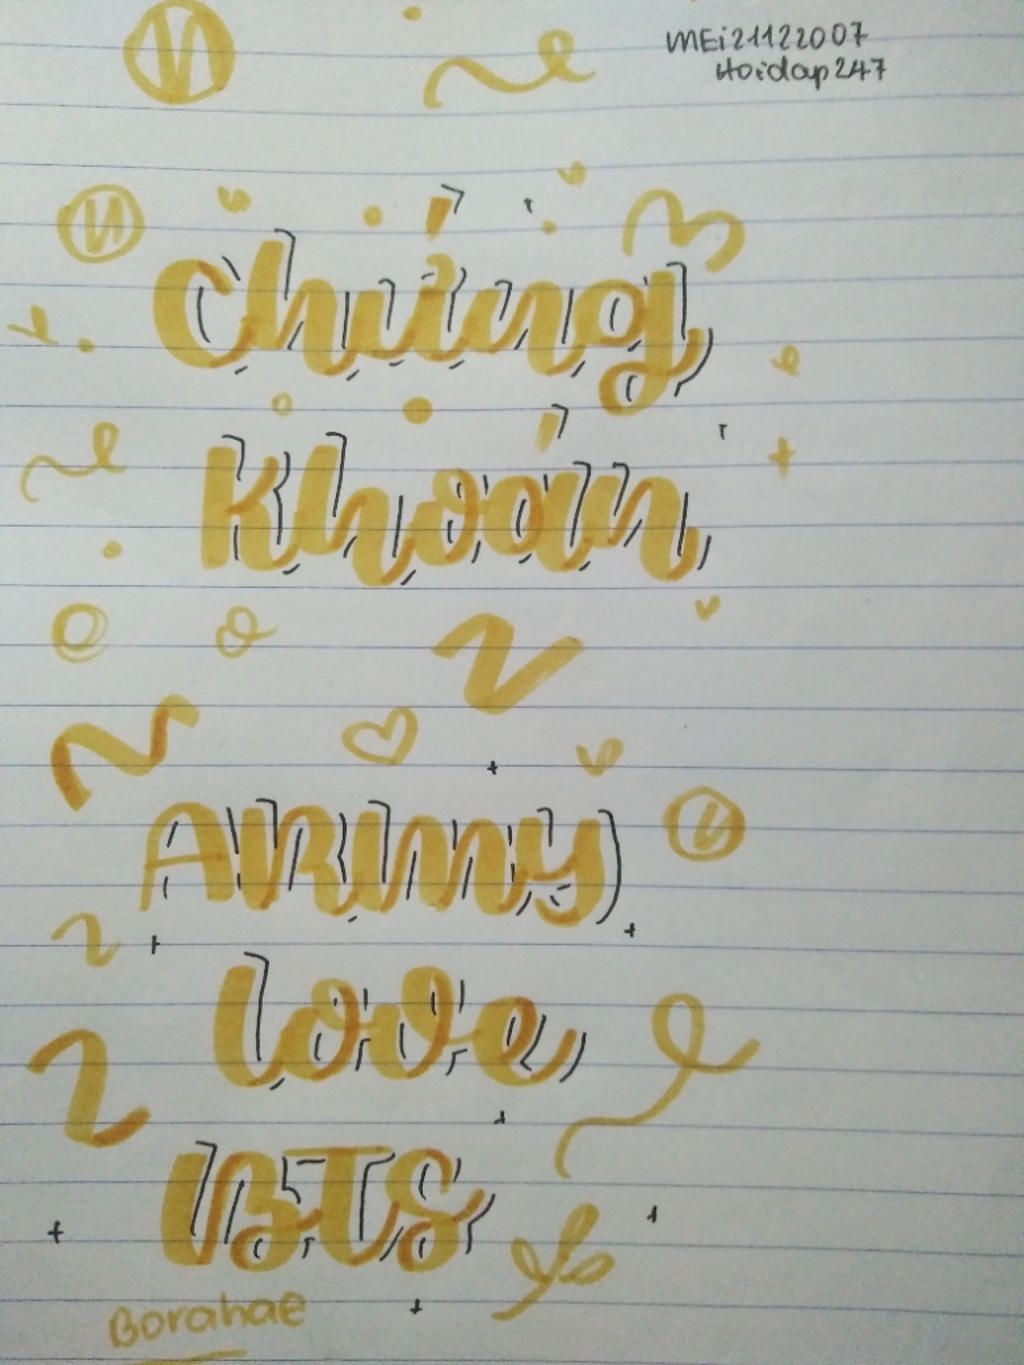 MEi21122007
Hoidap247
Chứng
Khoán
ARmy
love
BTS
Borahae